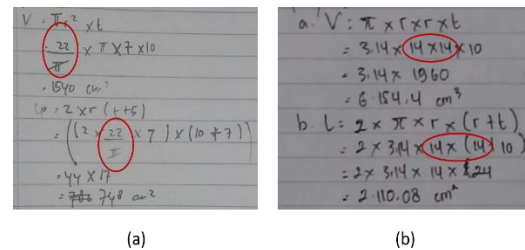 V = πr² × t
= 22/7 × 7 × 7 × 10
= 1540 cm³
Lp = 2 × r (r+t)
= (2 × 22/7 × 7) × (10 + 7)
= 44 × 17
= 748 cm²
(a)
a. V = π × r × r × t
= 3.14 × 14 × 14 × 10
= 3.14 × 1960
= 6.154,4 cm³
b. L = 2 × π × r × (r + t)
= 2 × 3.14 × 14 × (14 + 10)
= 2 × 3.14 × 14 × 24
= 2.110.08 cm²
(b)